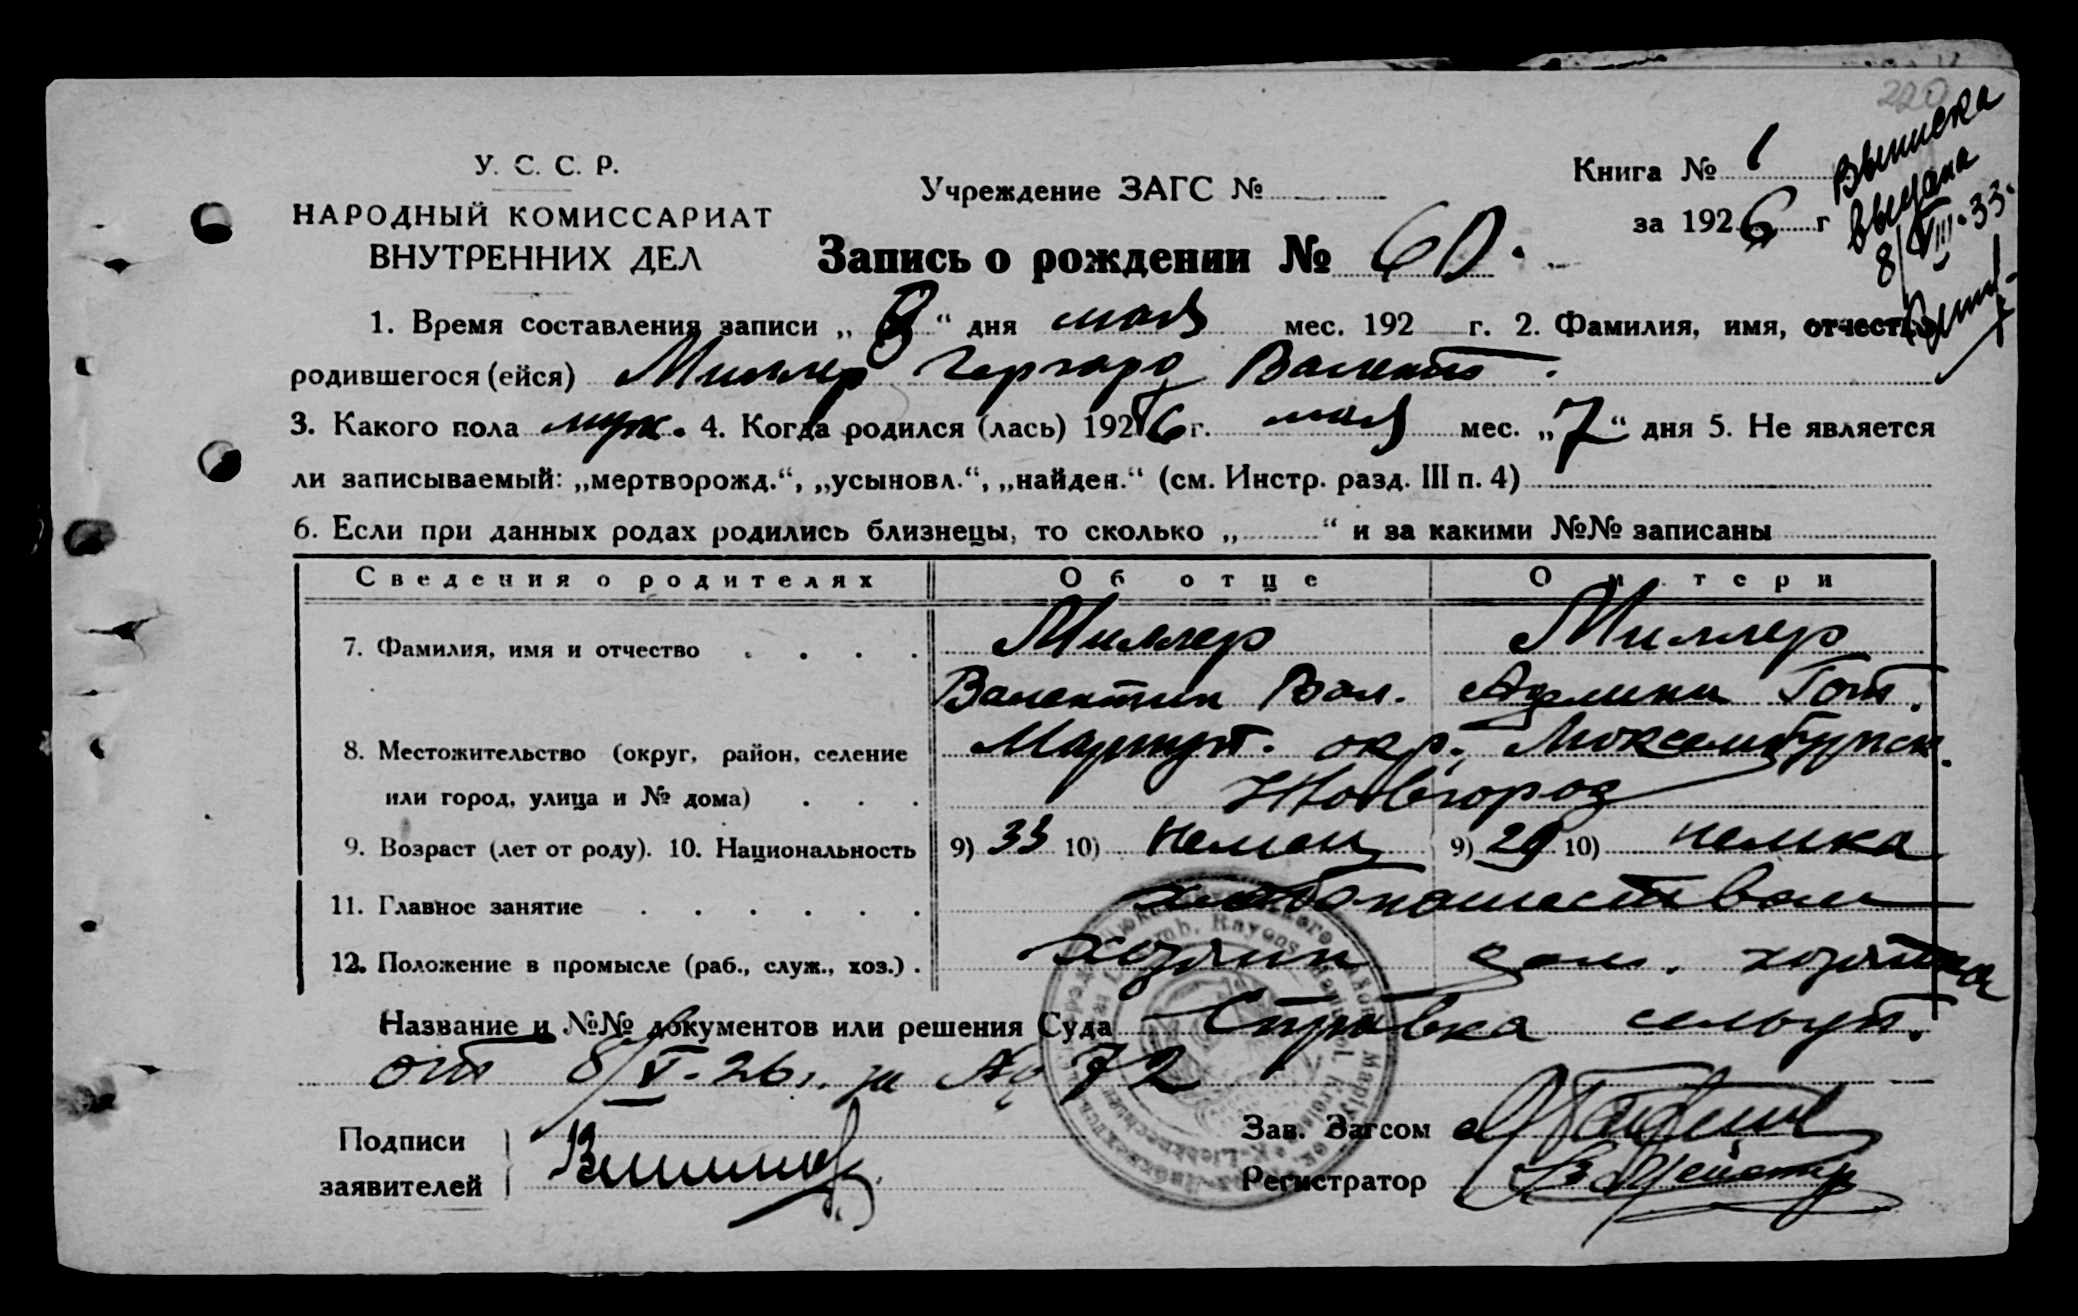 220
У. С. С. Р.
НАРОДНЫЙ КОМИССАРИАТ
ВНУТРЕННИХ ДЕЛ
Учреждение ЗАГС №
Книга № 1
за 1926 г
Выписка
выдана
8/VIII·33·
Запись о рождении № 60.
1. Время составления записи „8“ дня мая мес. 192 г. 2. Фамилия, имя, отчество
родившегося (ейся) Миллер Гергард Валент.
3. Какого пола муж. 4. Когда родился (лась) 1926 г. мая мес. „7“ дня 5. Не является
ли записываемый: „мертворожд.“, „усыновл.“, „найден.“ (см. Инстр. разд. III п. 4)
6. Если при данных родах родились близнецы, то сколько „ “ и за какими №№ записаны
Сведения о родителях Об отце О матери
7. Фамилия, имя и отчество Миллер Миллер
Валентин Вал. Гот.
8. Местожительство (округ, район, селение Мариуп. окр. Люксембургск.
или город, улица и № дома) Новгород
9. Возраст (лет от роду). 10. Национальность 9) 33 10) немец 9) 29 10) немка
11. Главное занятие хлебопашеством
12. Положение в промысле (раб., служ., хоз.) хозяин дом. хозяйка
Название и №№ документов или решения Суда Справка сельуп.
от 8/V-26 г. за № 72
Подписи
заявителей
Зав. Загсом
Регистратор